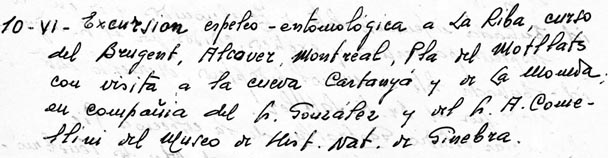 10-VI- Excursion espeleo-entomológica a La Riba, curso
del Brugent, Alcover, Montreal, Pla del Motllats
con visita a la cueva Cartanyá y de La Moneda,
en compañia del Sr. González y del Sr. A. Come-
llini del Museo de Hist. Nat. de Ginebra.